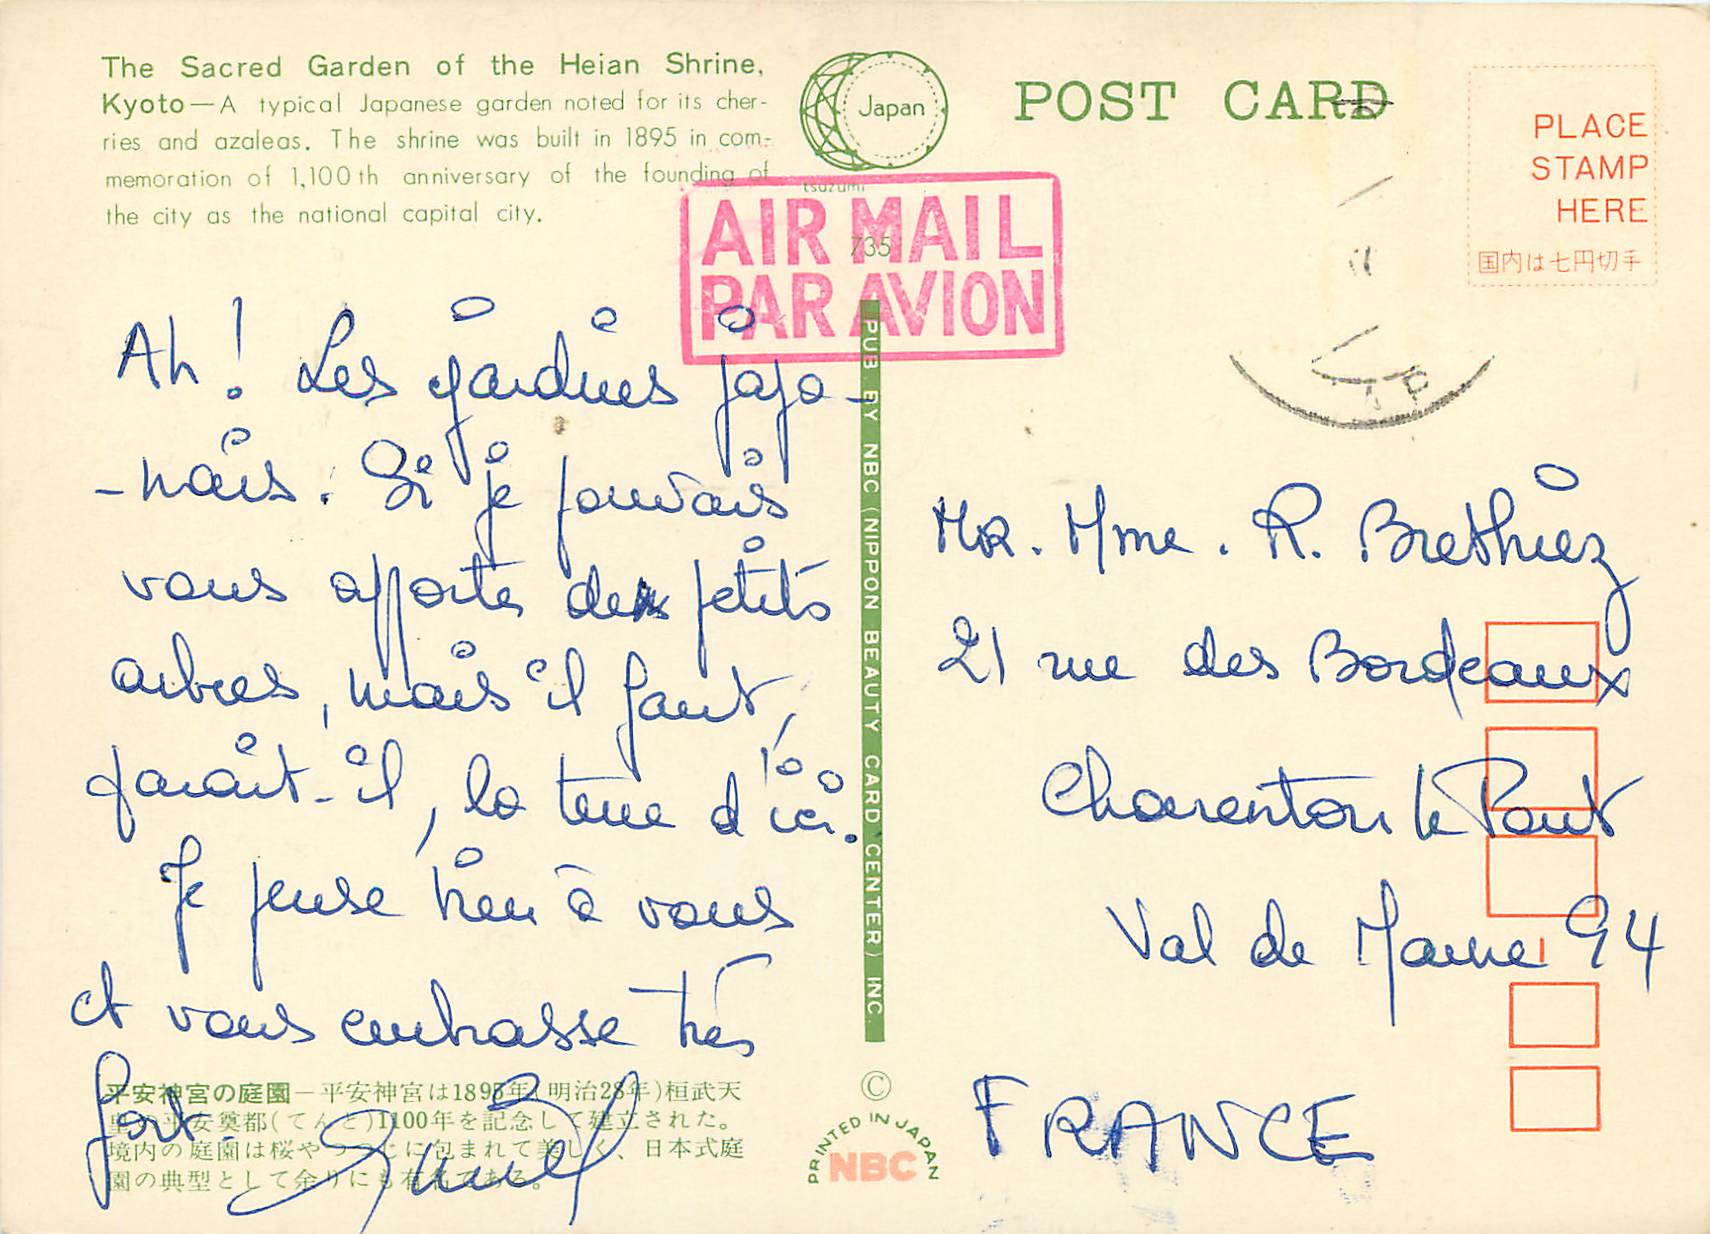 The Sacred Garden of the Heian Shrine,
Kyoto—A typical Japanese garden noted for its cher-
ries and azaleas. The shrine was built in 1895 in com-
memoration of 1,100th anniversary of the founding of
the city as the national capital city.
Japan
tsuzumi
735
POST CARD
PLACE
STAMP
HERE
国内は七円切手
AIR MAIL
PAR AVION
Ah ! Les jardins japo-
-nais. Si je pouvais
vous apporter des petits
arbres, mais il faut,
paraît-il, la terre d'ici.
Je pense bien à vous
et vous embrasse très
fort.
PUB. BY NBC (NIPPON BEAUTY CARD CENTER) INC.
Mr. Mme. R. Brethiez
21 rue des Bordeaux
Charenton le Pont
Val de Marne 94
FRANCE
平安神宮の庭園－平安神宮は1895年(明治28年)桓武天
皇の平安奠都(てんと)1100年を記念して建立された。
境内の庭園は桜やつつじに包まれて美しく、日本式庭
園の典型として余りにも有名である。
©
PRINTED IN JAPAN
NBC